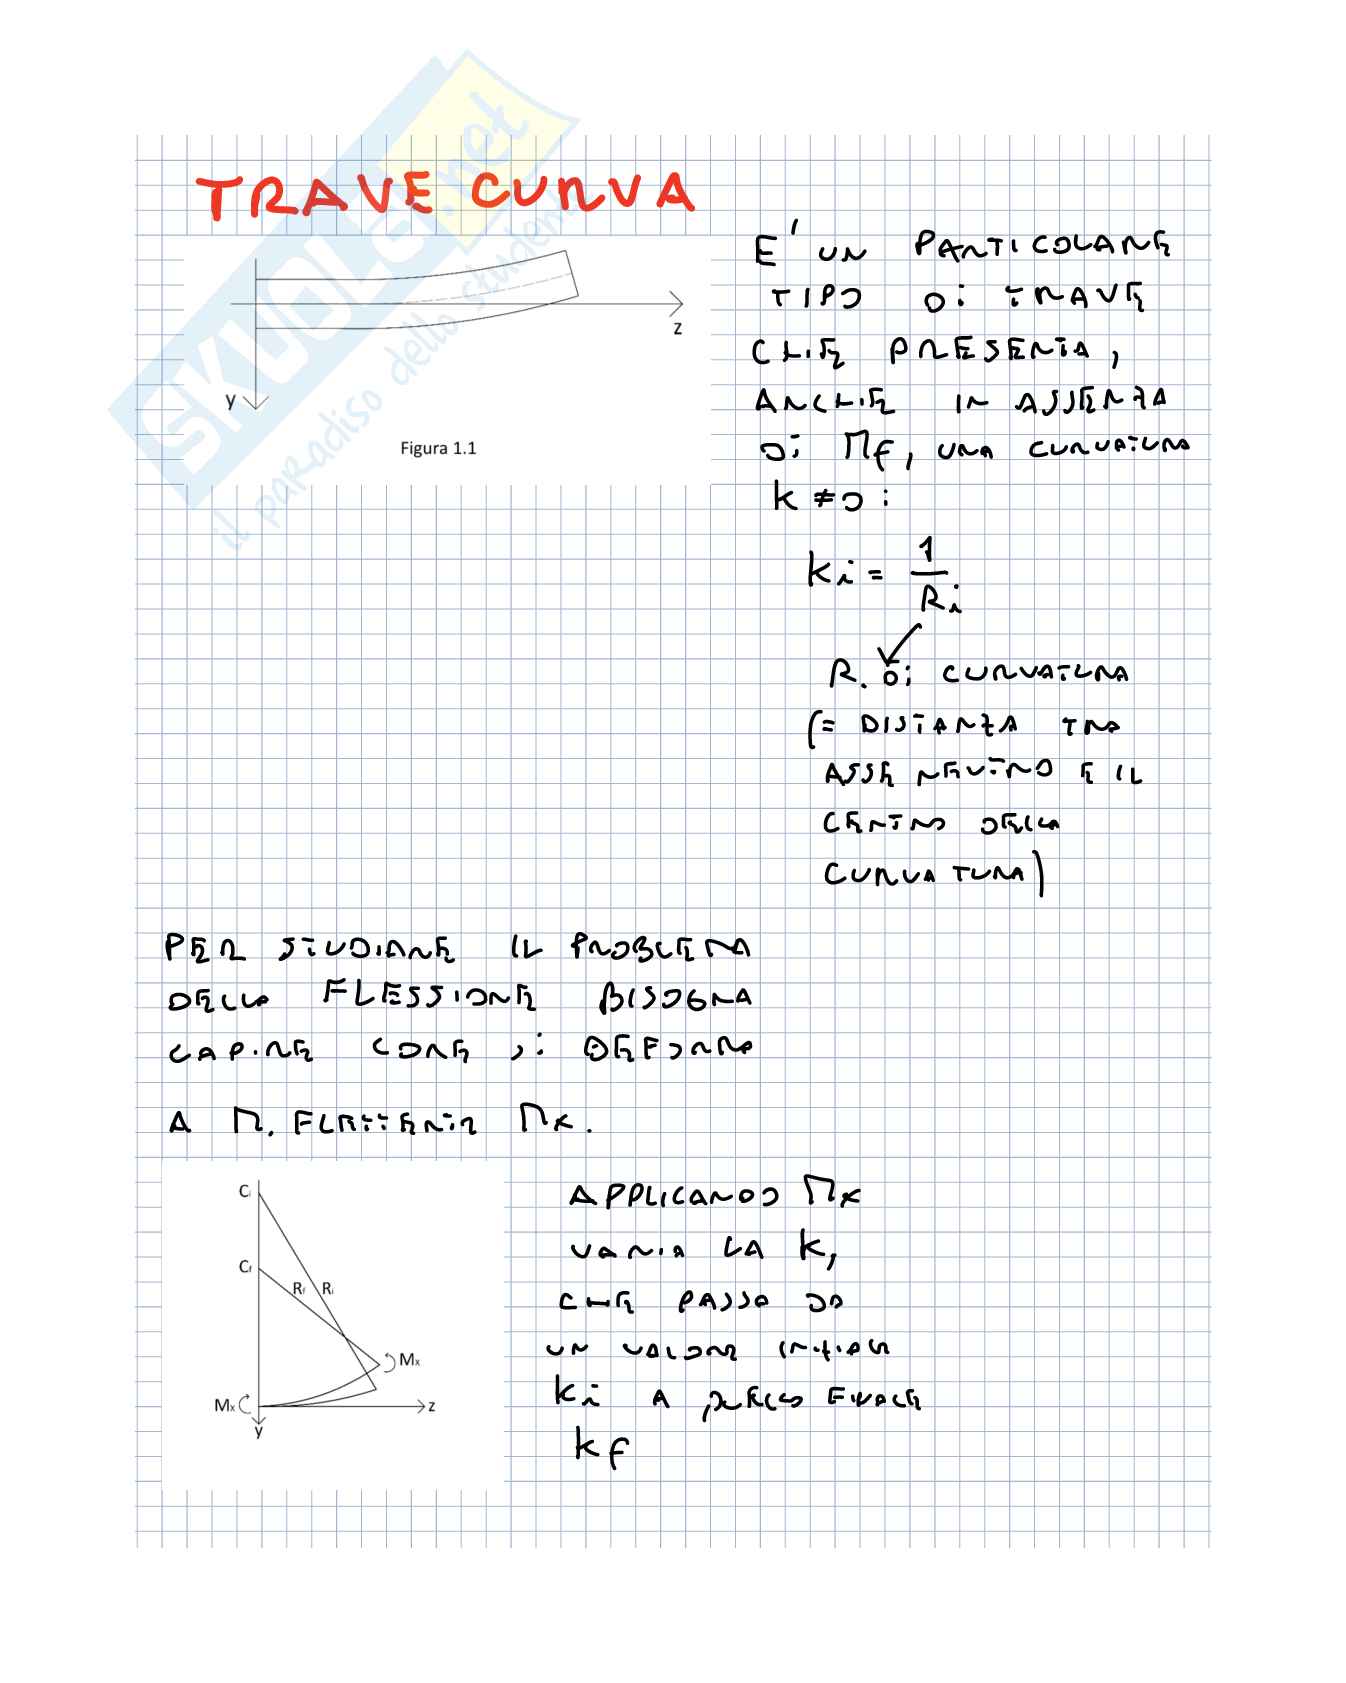 TRAVE CURVA
z
y
Figura 1.1
SKUOLA.net
il paradiso dello studente
E' UN PARTICOLARE
TIPO DI TRAVE
CHE PRESENTA,
ANCHE IN ASSENZA
DI Mf, UNA CURVATURA
K ≠ 0 :
Ki = 1/Ri
R. DI CURVATURA
(= DISTANZA TRA
ASSE NEUTRO E IL
CENTRO DELLA
CURVATURA)
PER STUDIARE IL PROBLEMA
DELLA FLESSIONE BISOGNA
CAPIRE COME SI DEFORMA
A M. FLETTENTE Mx.
Ci
Cf
Rf Ri
Mx
Mx
z
y
APPLICANDO Mx
VARIA LA K,
CHE PASSA DA
UN VALORE INIZIALE
Ki A QUELLO FINALE
Kf